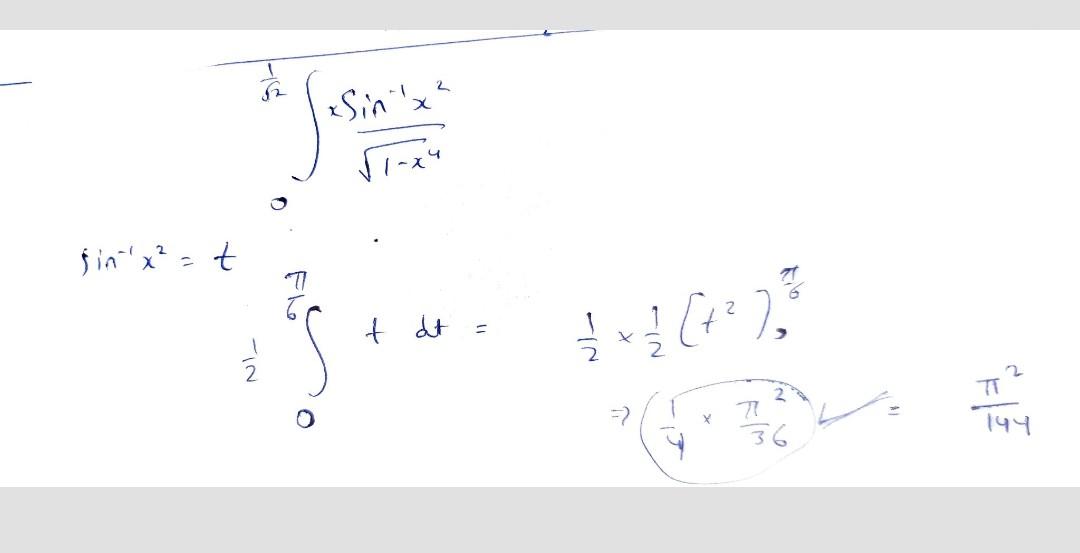 ∫₀^{1/√2} x Sin⁻¹x² / √1-x⁴
Sin⁻¹x² = t
1/2 ∫₀^{π/6} t dt = 1/2 × 1/2 [t²]₀^{π/6}
⇒ 1/4 × π²/36 ✓ = π²/144